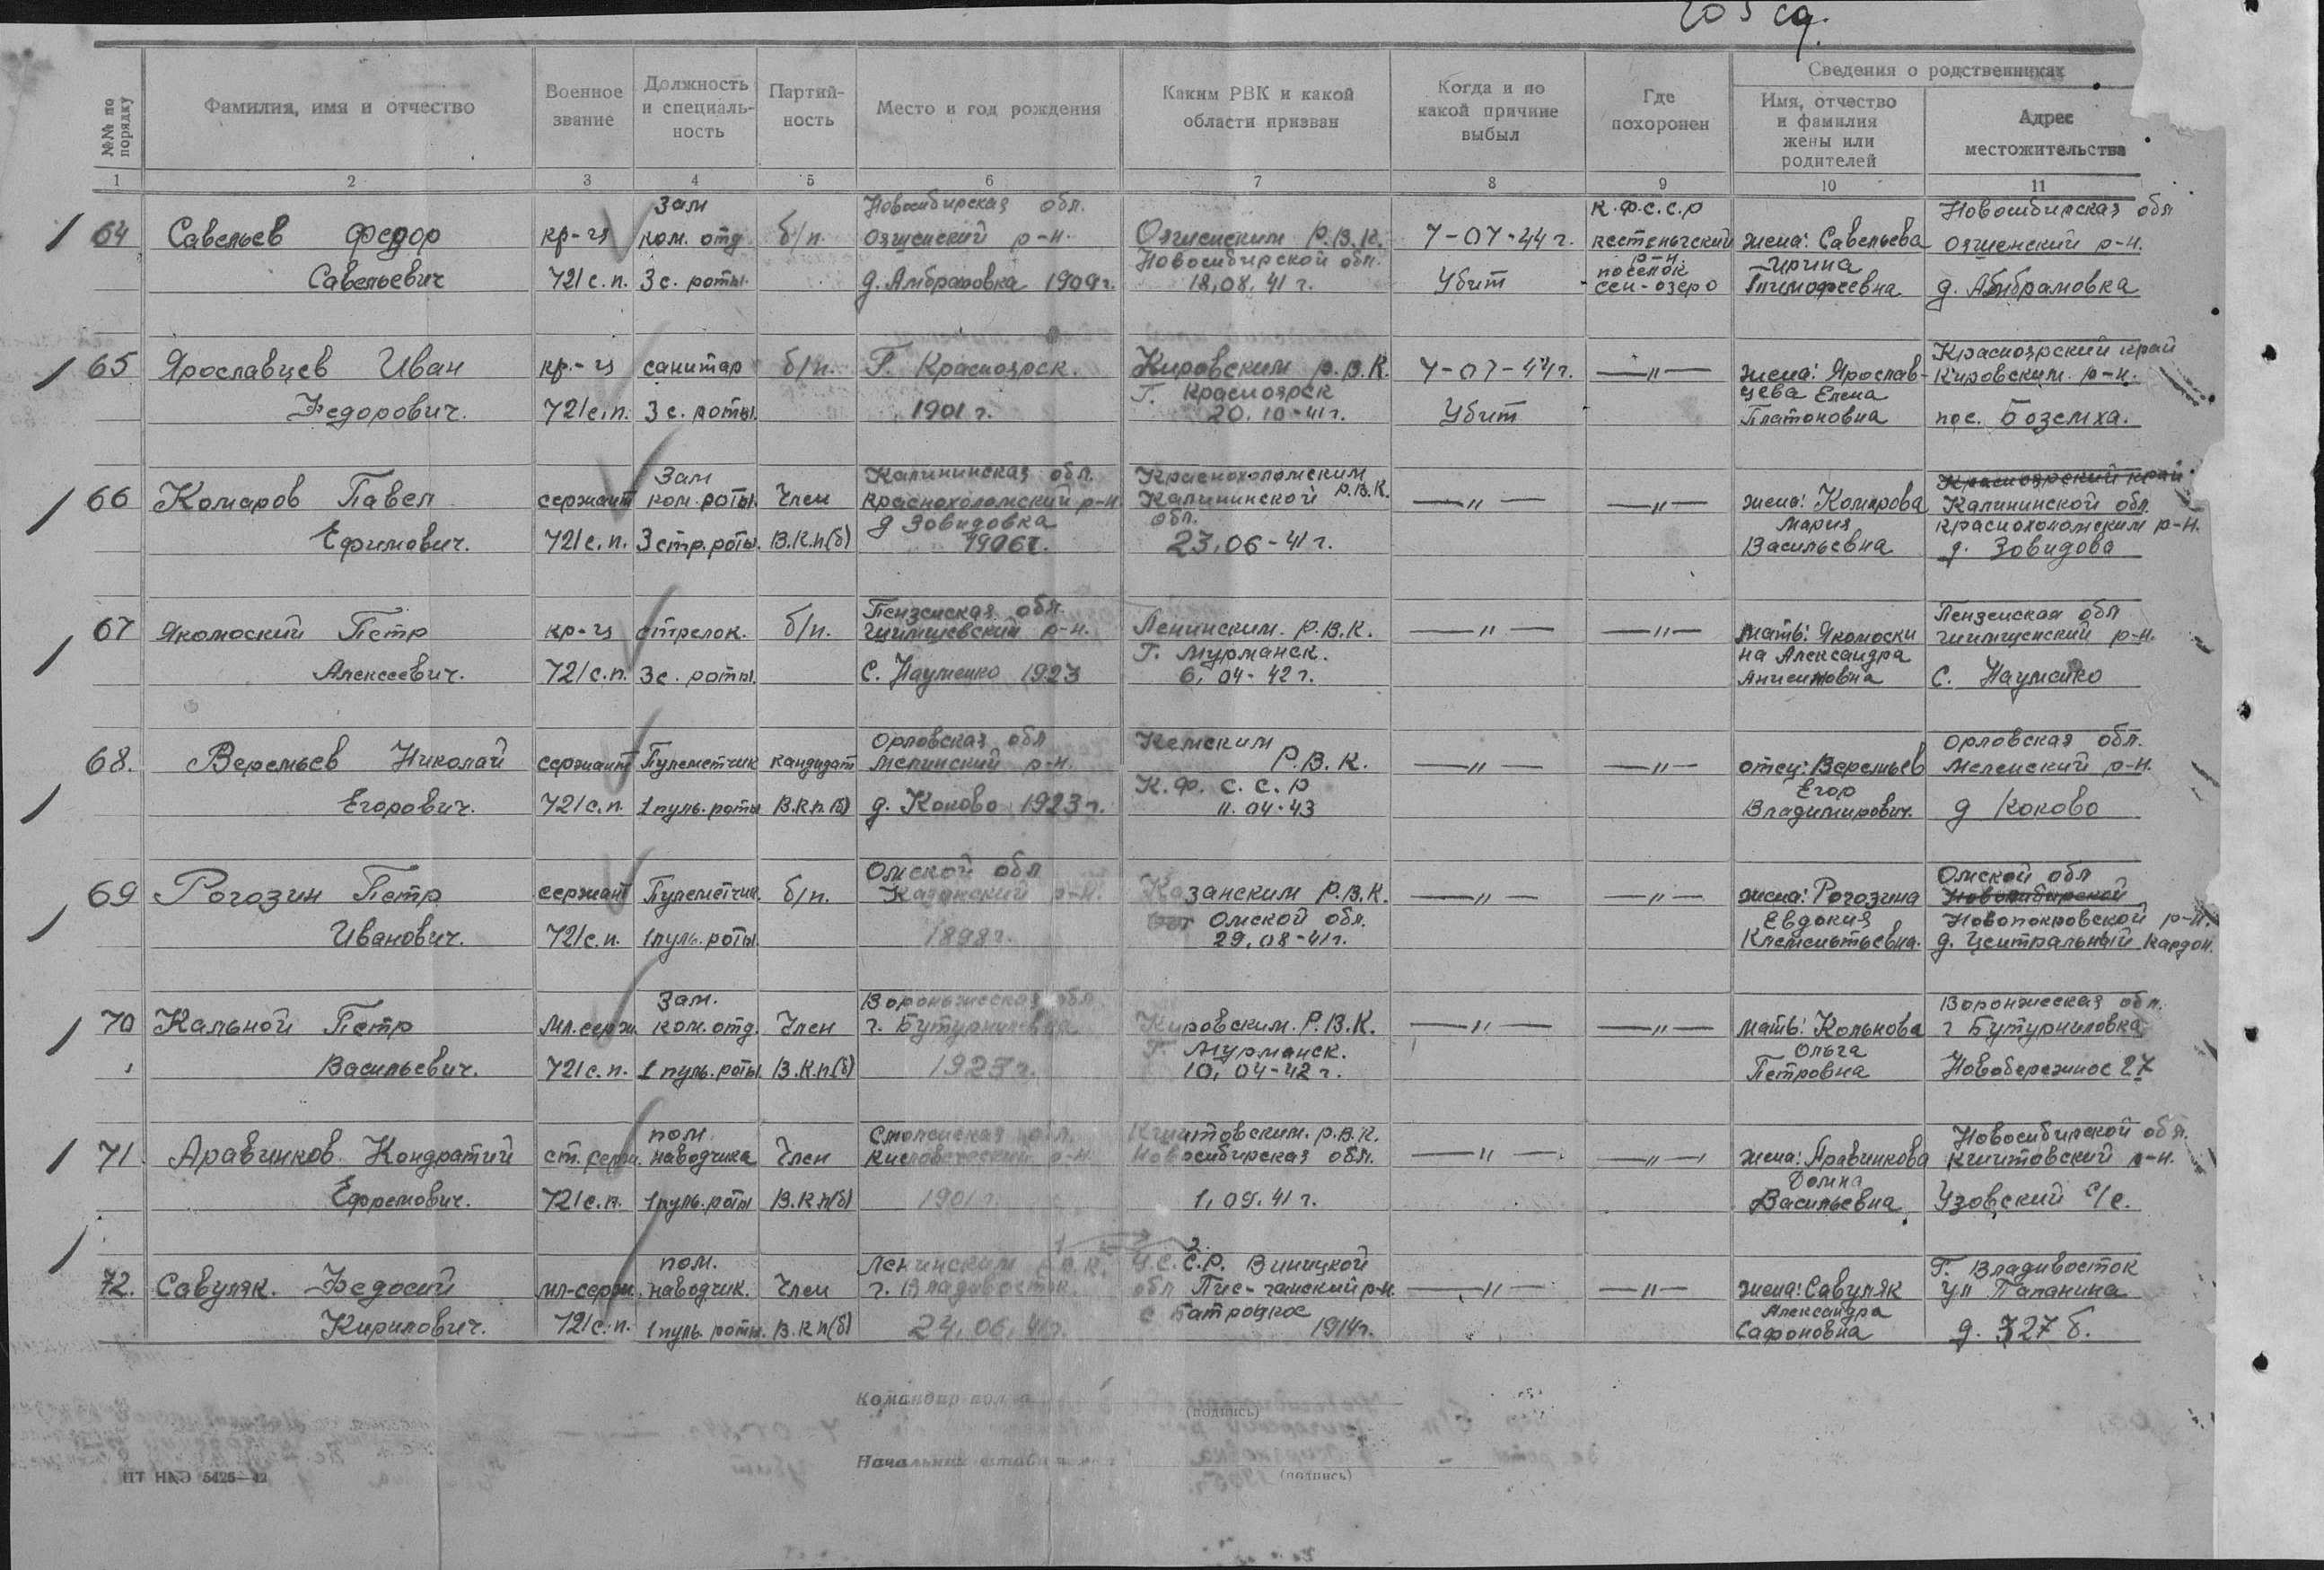 205 сд.
№№ по порядку
Фамилия, имя и отчество
Военное звание
Должность и специаль-ность
Партий-ность
Место и год рождения
Каким РВК и какой области призван
Когда и по какой причине выбыл
Где похоронен
Сведения о родственниках
Имя, отчество и фамилия жены или родителей
Адрес местожительства
1 2 3 4 5 6 7 8 9 10 11
64 Савельев Федор Савельевич
кр-ц 721 с.п.
Зам ком. отд 3 с. роты.
б/п.
Новосибирская обл. Ояшенский р-н. д. 1909 г.
Ояшенским Р.В.К. Новосибирской обл. 18,08,41 г.
7-07-44 г. Убит
К.Ф.С.С.Р кестеньгский р-н. поселок сен-озеро
жена: Савельева Ирина Тимофеевна
Новосибирская обл Ояшенский р-н. д.
65 Ярославцев Иван Федорович.
кр-ц 721 с.п.
санитар 3 с. роты.
б/п.
Г. Красноярск. 1901 г.
Кировским Р.В.К. Г. Красноярск 20.10-41 г.
7-07-44 г. Убит
—"—
жена: Ярослав-цева Елена Платоновна
Красноярский край Кировским р-н. пос.
66 Комаров Павел Ефимович.
сержант 721 с.п.
Зам ком. роты. 3 стр. роты.
Член В.К.П(б)
Калининская обл. Краснохоломский р-н. д Зовидовка 1906 г.
Краснохоломским Р.В.К. Калининской обл. 23,06-41 г.
—"—
—"—
жена: Комарова Мария Васильевна
Красноярский край Калининской обл. Краснохоломским р-н. д. Зовидова
67 Якомоский Петр Алексеевич.
кр-ц 721 с.п.
стрелок. 3 с. роты.
б/п.
Пензенская обл. р-н. С. Науменко 1923
Ленинским. Р.В.К. Г. Мурманск. 6, 04-42 г.
—"—
—"—
мать: Якомоски на Александра Анисимовна
Пензенская обл р-н. С. Науменко
68. Веремьев Николай Егорович.
сержант 721 с.п.
Пулеметчик 1 пуль. роты
кандидат В.К.П.(б)
Орловская обл р-н. д. Коково 1923 г.
Кемским Р.В.К. К.Ф.С.С.Р 11.04-43
—"—
—"—
отец: Веремьев Егор Владимирович.
Орловская обл. р-н. д Коково
69 Рогозин Петр Иванович.
сержант 721 с.п.
Пулеметчик. 1 пуль. роты.
б/п.
Омской обл Казанский р-н. 1898 г.
Казанским Р.В.К. Омской обл. 29,08-41 г.
—"—
—"—
жена: Рогозина Евдокия Клементьевна.
Омской обл Новосибирской Новопокровской р-н. д. Центральный кардон.
70 Кальной Петр Васильевич.
мл.серж. 721 с.п.
Зам. ком. отд. 1 пуль. роты
Член В.К.П(б)
обл. г. Бутурлиновка 1923 г.
Кировским. Р.В.К. Г. Мурманск. 10, 04-42 г.
—"—
—"—
мать: Колькова Ольга Петровна
обл. г Бутурлиловка Новобережное 27
71. Аравинков Кондратий Ефремович.
ст. серж. 721 с.п.
пом. наводчика 1 пуль. роты
Член В.К.П(б)
Смоленская обл. р-н 1901 г.
Кыштовским. Р.В.К. Новосибирская обл. 1,09.41 г.
—"—
—"—
жена: Аравинкова Домна Васильевна
Новосибирской обл. Кыштовский р-н. Узовский с/с.
72. Савуляк. Федосий Кирилович.
мл-серж. 721 с.п.
пом. наводчик. 1 пуль. роты.
Член В.К.П(б)
Ленинским Р.В.К. г. Владивосток. 24,06,41 г.
У.С.С.Р. Виницкой обл р-н. с 1914 г.
—"—
—"—
жена: Савуляк Александра Сафоновна
Г. Владивосток ул Папанина д. 327 б.
Командир полка
(подпись)
Начальник штаба полка
(подпись)